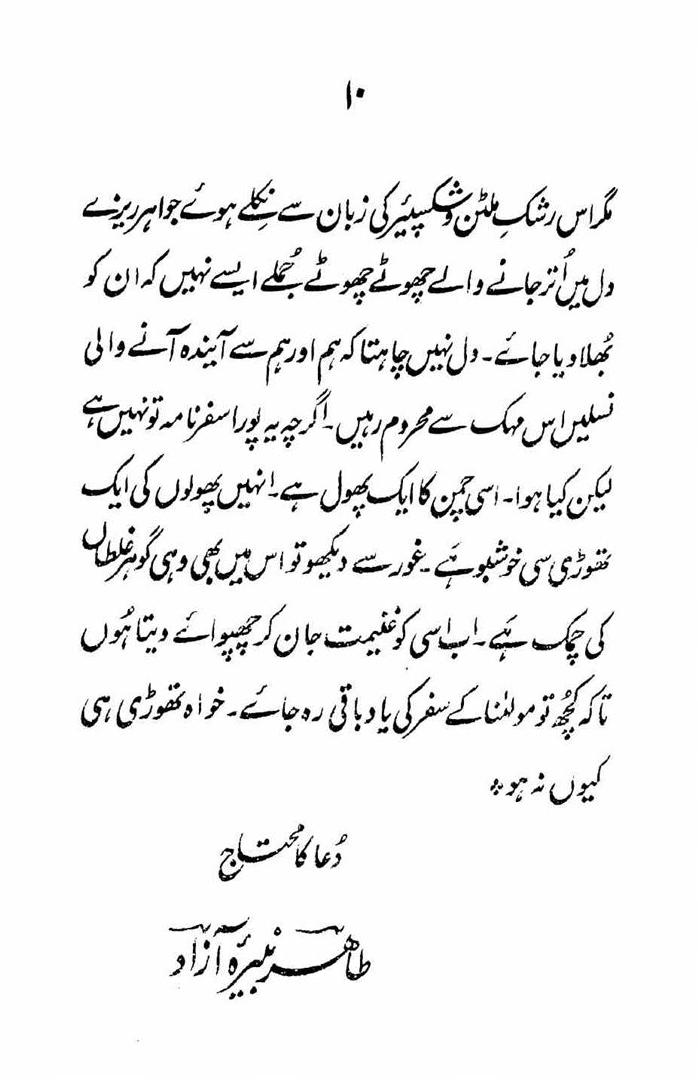 ۱۰
مگر اس رشکِ ملٹن و شکسپئیر کی زبان سے نِکلے ہوئے جواہر ریزے
دل میں اُتر جانے والے چھوٹے چھوٹے جُملے ایسے نہیں کہ ان کو
بُھلا دیا جائے۔ دل نہیں چاہتا کہ ہم اور ہم سے آیندہ آنے والی
نسلیں اس مہک سے محروم رہیں۔ اگرچہ یہ پورا سفرنامہ تو نہیں ہے
لیکن کیا ہوا۔ اسی چمن کا ایک پھول ہے۔ انہیں پھولوں کی ایک
تھوڑی سی خوشبو ہَے۔ غور سے دیکھو تو اس میں بھی وہی گوہرِ غلطاں
کی چمک ہَے۔ اب اسی کو غنیمت جان کر چھپوائے دیتا ہُوں
تاکہ کُچھ تو مولٰنا کے سفر کی یاد باقی رہ جائے۔ خواہ تھوڑی ہی
کیوں نہ ہو٭
دُعا کا محتاج
طاہر نبیرۂ آزاد